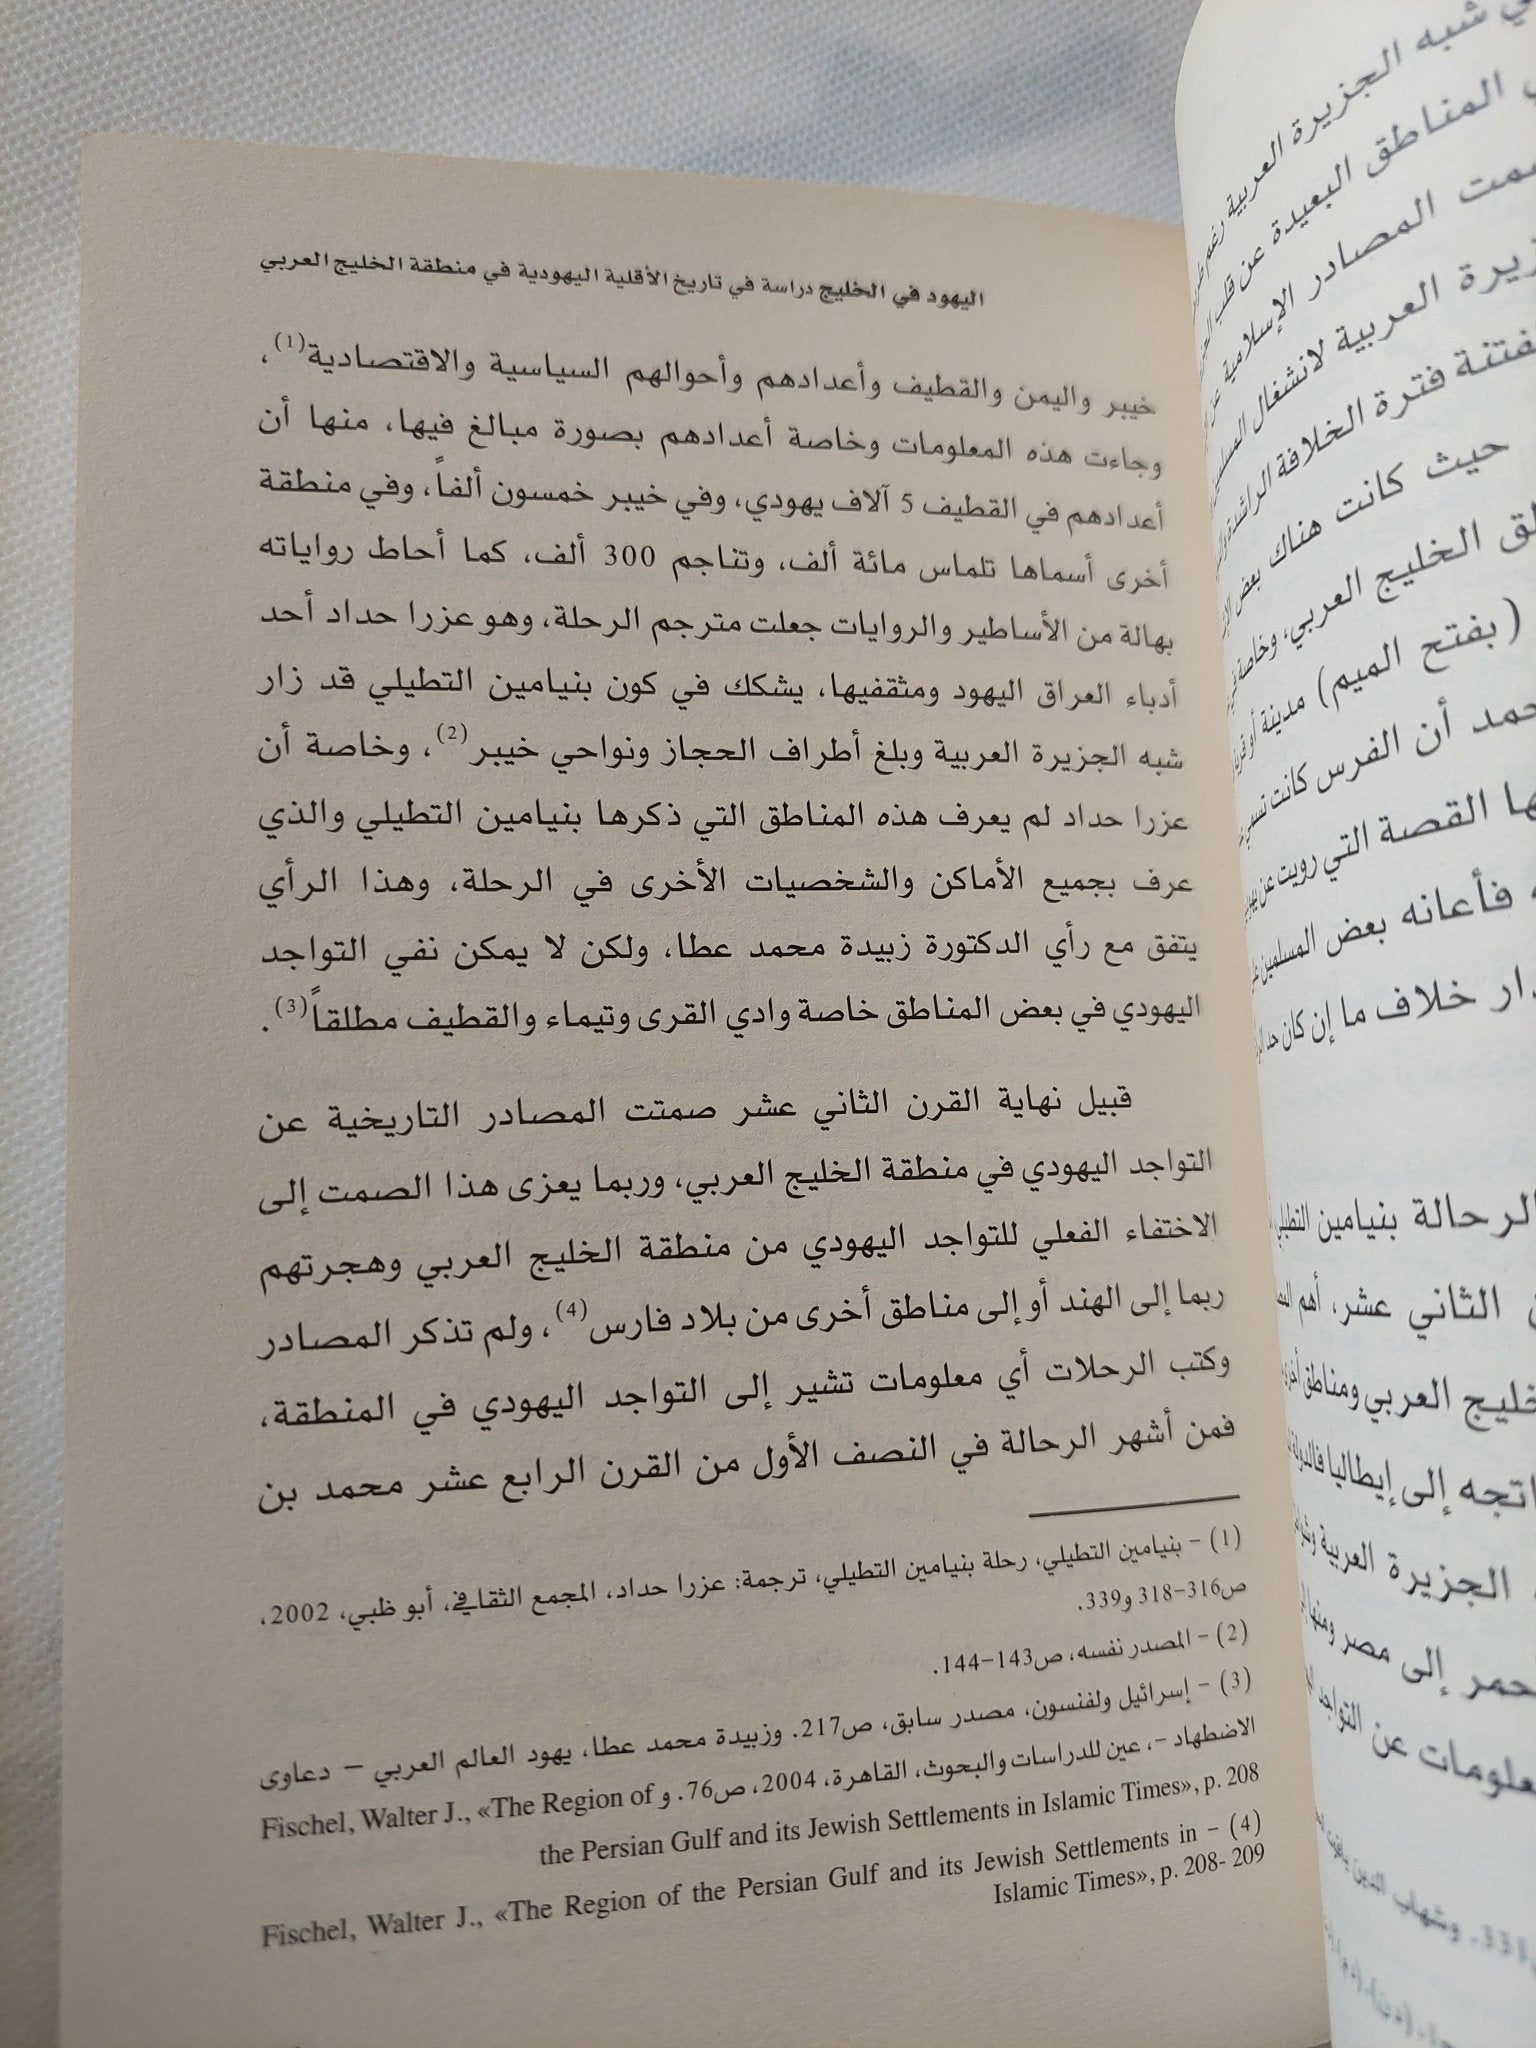 اليهود في الخليج دراسة في تاريخ الأقلية اليهودية في منطقة الخليج العربي
خيبر واليمن والقطيف وأعدادهم وأحوالهم السياسية والاقتصادية(1)،
وجاءت هذه المعلومات وخاصة أعدادهم بصورة مبالغ فيها، منها أن
أعدادهم في القطيف 5 آلاف يهودي، وفي خيبر خمسون ألفاً، وفي منطقة
أخرى أسماها تلماس مائة ألف، وتناجم 300 ألف، كما أحاط رواياته
بهالة من الأساطير والروايات جعلت مترجم الرحلة، وهو عزرا حداد أحد
أدباء العراق اليهود ومثقفيها، يشكك في كون بنيامين التطيلي قد زار
شبه الجزيرة العربية وبلغ أطراف الحجاز ونواحي خيبر(2)، وخاصة أن
عزرا حداد لم يعرف هذه المناطق التي ذكرها بنيامين التطيلي والذي
عرف بجميع الأماكن والشخصيات الأخرى في الرحلة، وهذا الرأي
يتفق مع رأي الدكتورة زبيدة محمد عطا، ولكن لا يمكن نفي التواجد
اليهودي في بعض المناطق خاصة وادي القرى وتيماء والقطيف مطلقاً(3).
قبيل نهاية القرن الثاني عشر صمتت المصادر التاريخية عن
التواجد اليهودي في منطقة الخليج العربي، وربما يعزى هذا الصمت إلى
الاختفاء الفعلي للتواجد اليهودي من منطقة الخليج العربي وهجرتهم
ربما إلى الهند أو إلى مناطق أخرى من بلاد فارس(4)، ولم تذكر المصادر
وكتب الرحلات أي معلومات تشير إلى التواجد اليهودي في المنطقة،
فمن أشهر الرحالة في النصف الأول من القرن الرابع عشر محمد بن
(1) – بنيامين التطيلي، رحلة بنيامين التطيلي، ترجمة: عزرا حداد، المجمع الثقافي، أبو ظبي، 2002،
ص316–318 و339.
(2) – المصدر نفسه، ص143–144.
(3) – إسرائيل ولفنسون، مصدر سابق، ص217. وزبيدة محمد عطا، يهود العالم العربي – دعاوى
الاضطهاد –، عين للدراسات والبحوث، القاهرة، 2004، ص76. و Fischel, Walter J., «The Region of
the Persian Gulf and its Jewish Settlements in Islamic Times», p. 208
(4) – Fischel, Walter J., «The Region of the Persian Gulf and its Jewish Settlements in
Islamic Times», p. 208- 209
شبه الجزيرة العربية رغم
المناطق البعيدة عن قلب
المصادر الإسلامية عن
العربية لانشغال
فترة الخلافة الراشدة
حيث كانت هناك بعض
الخليج العربي، وخاصة
(بفتح الميم) مدينة أو
أن الفرس كانت تسمي
القصة التي رويت عن
فأعانه بعض المسلمين
خلاف ما إن كان
الرحالة بنيامين التطيلي
الثاني عشر، أهم
العربي ومناطق
اتجه إلى إيطاليا
الجزيرة العربية
إلى مصر ومنها
عن التواجد